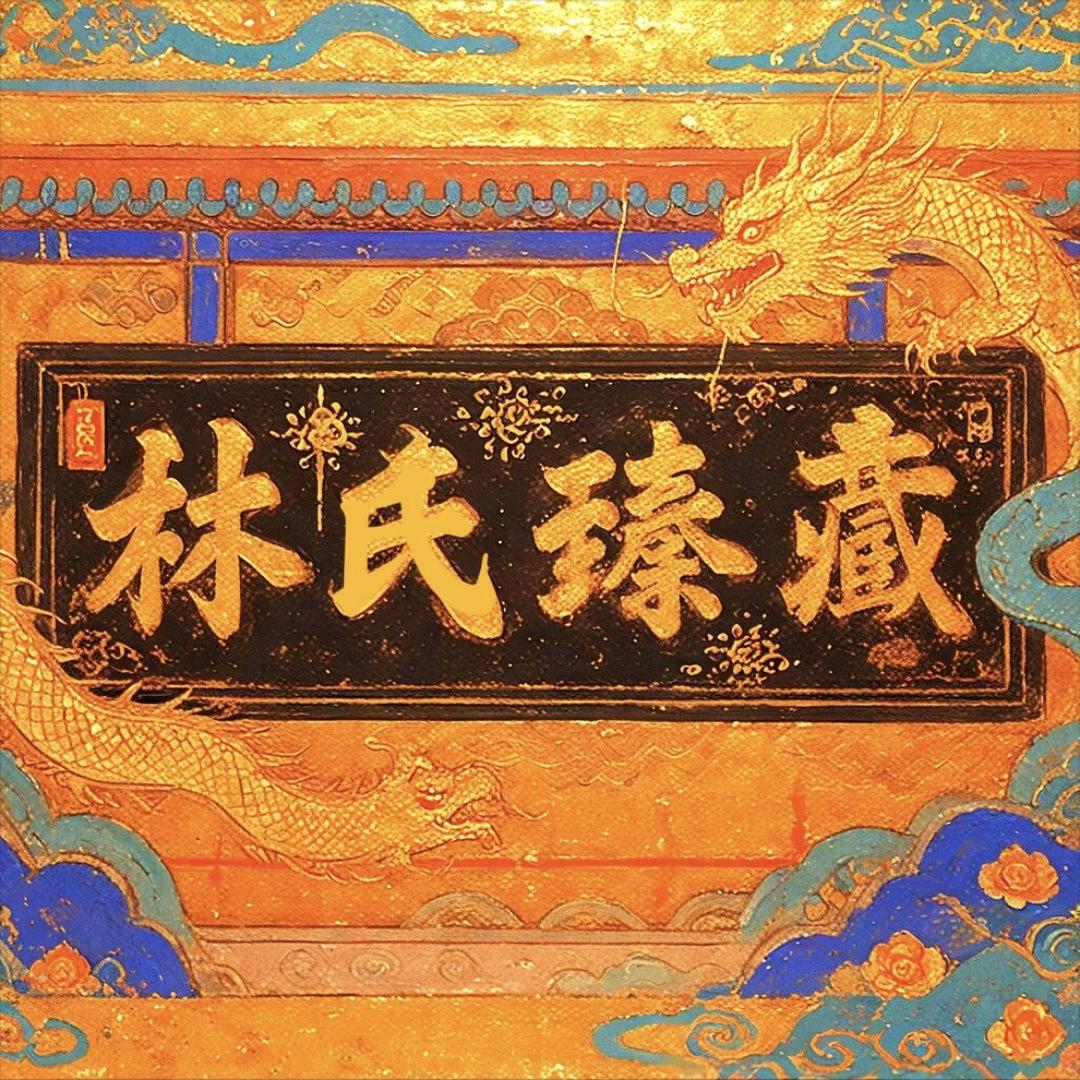 林氏臻藏